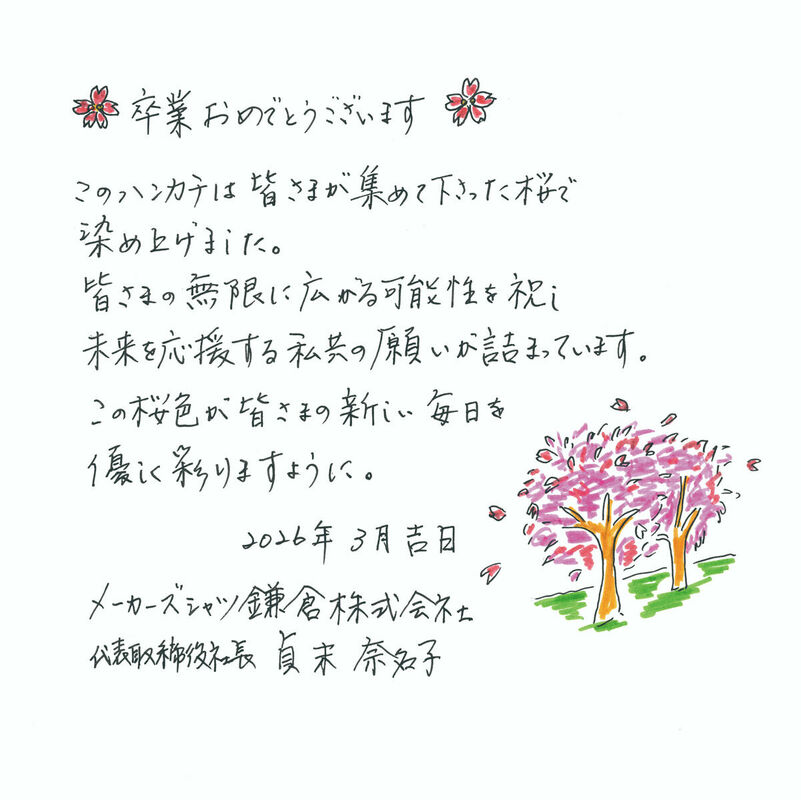 卒業おめでとうございます
このハンカチは皆さまが集めて下さった桜で
染め上げました。
皆さまの無限に広がる可能性を祝し
未来を応援する私共の願いが詰まっています。
この桜色が皆さまの新しい毎日を
優しく彩りますように。
2026年 3月吉日
メーカーズシャツ鎌倉株式会社
代表取締役社長 貞末 奈名子